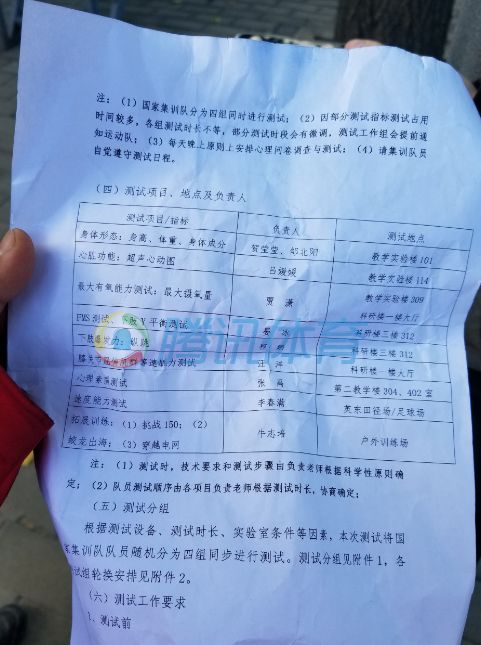 注：（1）国家集训队分为四组同时进行测试；（2）因部分测试指标测试占用
时间较多，各组测试时长不等，部分测试时段会有微调，测试工作组会提前通
知运动队；（3）每天晚上原则上安排心理问卷调查与测试；（4）请集训队员
自觉遵守测试日程。
（四）测试项目、地点及负责人
测试项目/指标 负责人 测试地点
身体形态：身高、体重、身体成分 贺莹莹、 教学实验楼 101
心脏功能：超声心动图 吕媛媛 教学实验楼 114
最大有氧能力测试：最大摄氧量 贾 潇 教学实验楼 309
科研楼一楼大厅
FMS 测试、下肢 Y 平衡测试 科研楼三楼 312
下肢爆发力：纵跳 科研楼三楼 312
等速能力测试 汪 洋 科研楼一楼大厅
心理素质测试 张 禹 第二教学楼 304、402 室
速度能力测试 李春满 英东田径场/足球场
拓展训练：（1）挑战 150；（2）
蛟龙出海；（3）穿越电网 牛志培 户外训练场
注：（1）测试时，技术要求和测试步骤由负责老师根据科学性原则确
定；（2）队员测试顺序由各项目负责老师根据测试时长，协商确定；
（五）测试分组
根据测试设备、测试时长、实验室条件等因素，本次测试将国
家集训队队员随机分为四组同步进行测试。测试分组见附件 1，各
试组轮换安排见附件 2。
（六）测试工作要求
1、测试前
腾讯体育